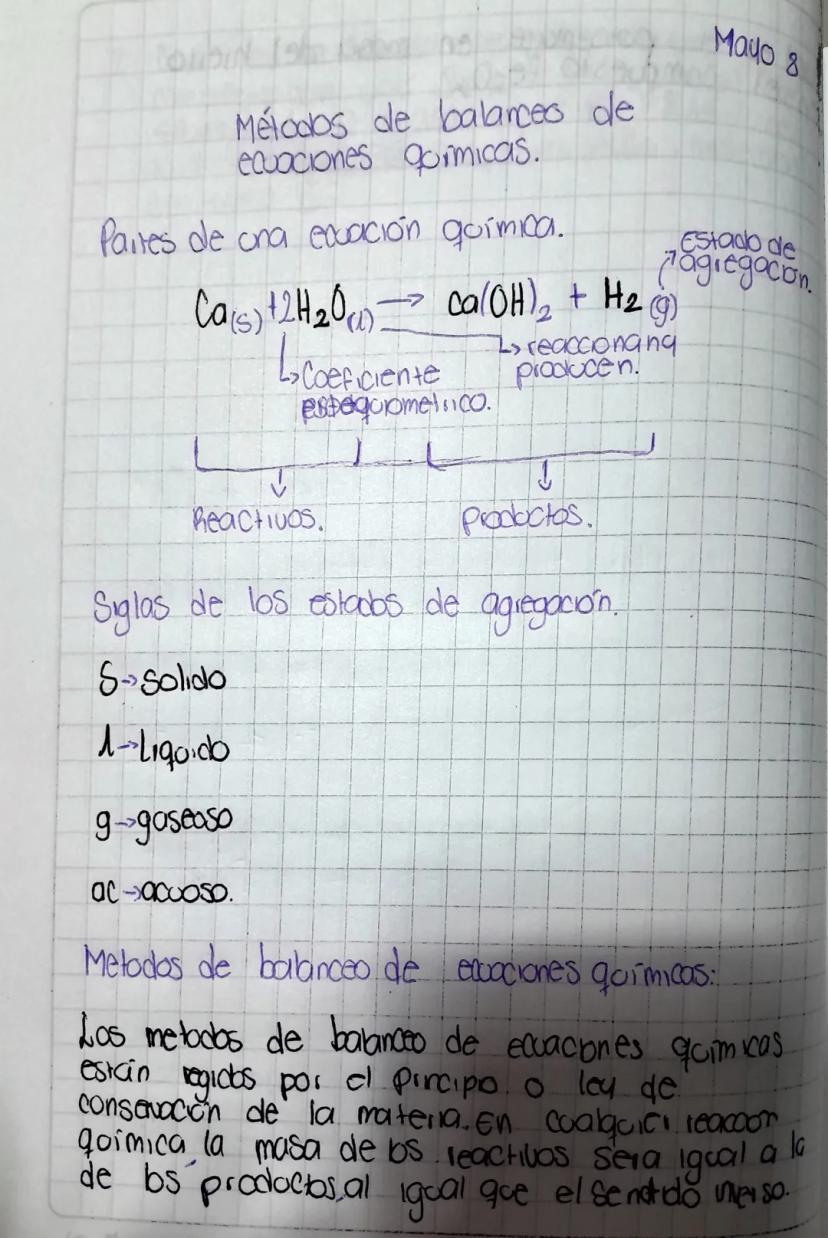 Mayo 8
Métodos de balanceo de
ecuaciones químicas.
Partes de una ecuación química.
Estado de
agregación.
Ca(s) + 2H₂O(l) → Ca(OH)₂ + H₂ (g)
↳ reaccionan y
producen.
↳ Coeficiente
estequiometrico.
Reactivos. Productos.
Siglas de los estados de agregación.
S→Solido
l→Liquido
g→gaseoso
ac→acuoso.
Metodos de balanceo de ecuaciones químicas:
Los metodos de balanceo de ecuaciones quimicas
están regidos por el pincipo o ley de
conservación de la materia. En cualquier reaccion
química la masa de los reactivos sera igual a la
de los productos, al igual que el sentido inverso.